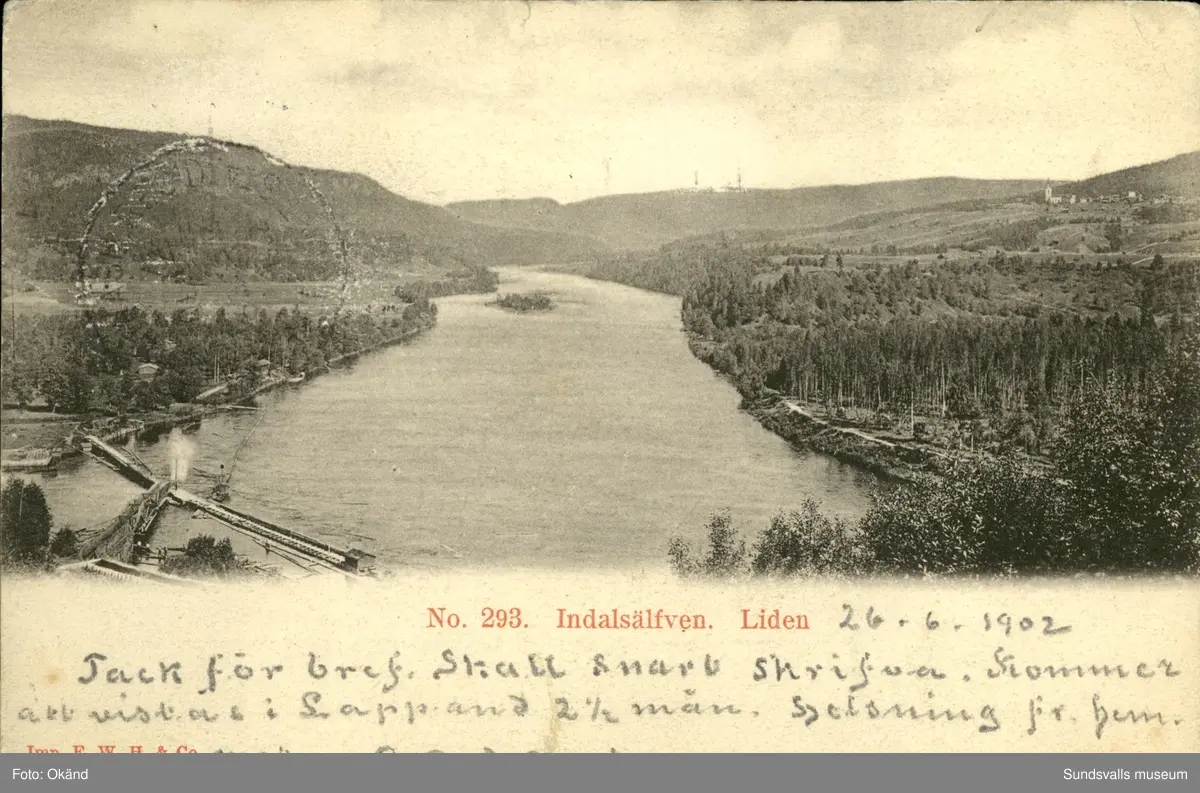 No. 293. Indalsälfven. Liden 26 - 6. 1902
Tack för bref. Skall snart skrifva. Kommer
att vistas i Lappland 2½ mån. Helsning fr. hem.
Imp. E. W. H. & Co
Foto: Okänd
Sundsvalls museum